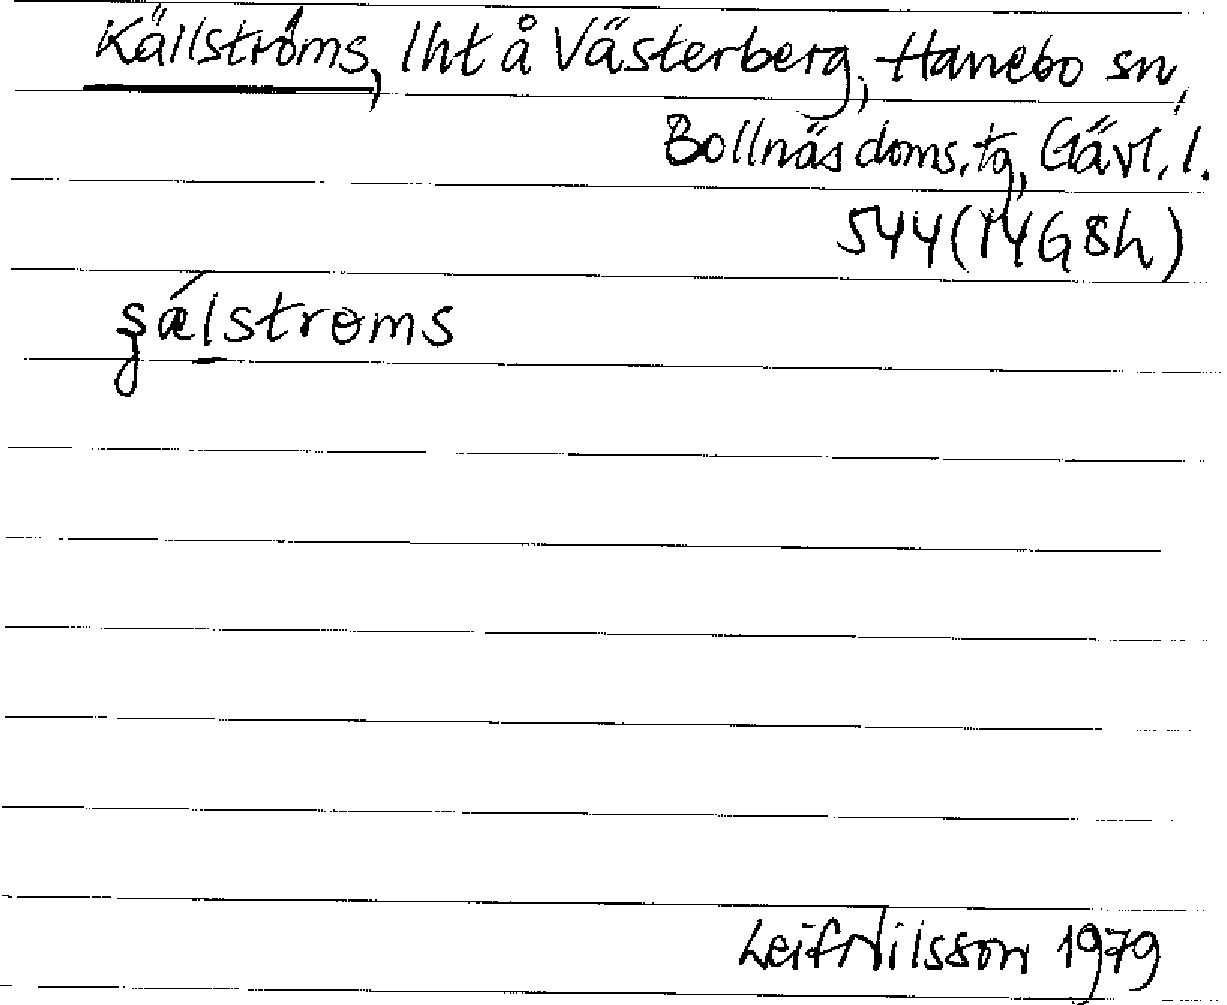 Källströms, lht å Västerberg, Hanebo sn,
Bollnäs doms.tg, Gävl. l.
544 (14G8h)
ʂǽlstrɵms
Leif Nilsson 1979